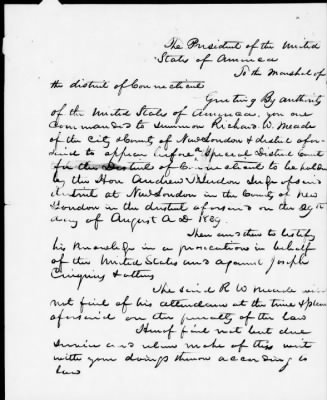 The President of the United
States of America
To the Marshal of
the district of Connecticut
Greeting By authority
of the United States of America, you are
Commanded to summon Richard W. Meade
of the City & County of New London & district afore
said to appear before a Special District Court
for the District of Connecticut to be holden
by the Hon Andrew T Judson Judge of said
district at New London in the County of New
London in the district aforesaid on the 29th
day of August A D 1839.
Then and there to testify
his knowledge in a prosecution in behalf
of the United States and against Joseph
Cinquez & others
The said R W Meade will
not fail of his attendance at the time & place
aforesaid on the penalty of the law
Hereof fail not but due
service and return make of this writ
with your doings thereon according to
law